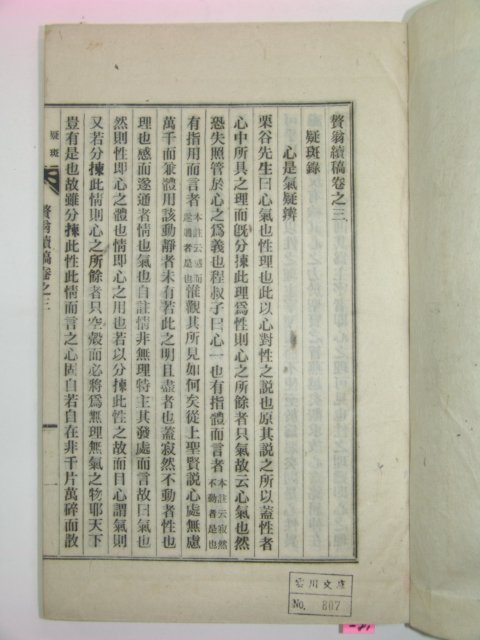 贅翁續稿卷之三
疑斑錄
心是氣疑辨
栗谷先生曰心氣也性理也此以心對性之說也原其說之所以蓋性者
心中所具之理而旣分揀此理爲性則心之所餘者只氣故云心氣也然
恐失照管於心之爲義也程叔子曰心一也有指體而言者本註云寂然不動者是也
有指用而言者本註云感而遂通者是也惟觀其所見如何矣從上聖賢說心處無慮
萬千而兼體用該動靜者未有若此之明且盡者也蓋寂然不動者性也
理也感而遂通者情也氣也自註情非無理特主其發處而言故曰氣也
然則性即心之體也情即心之用也若以分揀此性之故而目心謂氣則
又若分揀此情則心之所餘者只空殼而必將爲無理無氣之物耶天下
豈有是也故雖分揀此性此情而言之心固自若自在非千片萬碎而散
疑斑
贅翁續稿卷之三
一
雲川文庫
No. 807